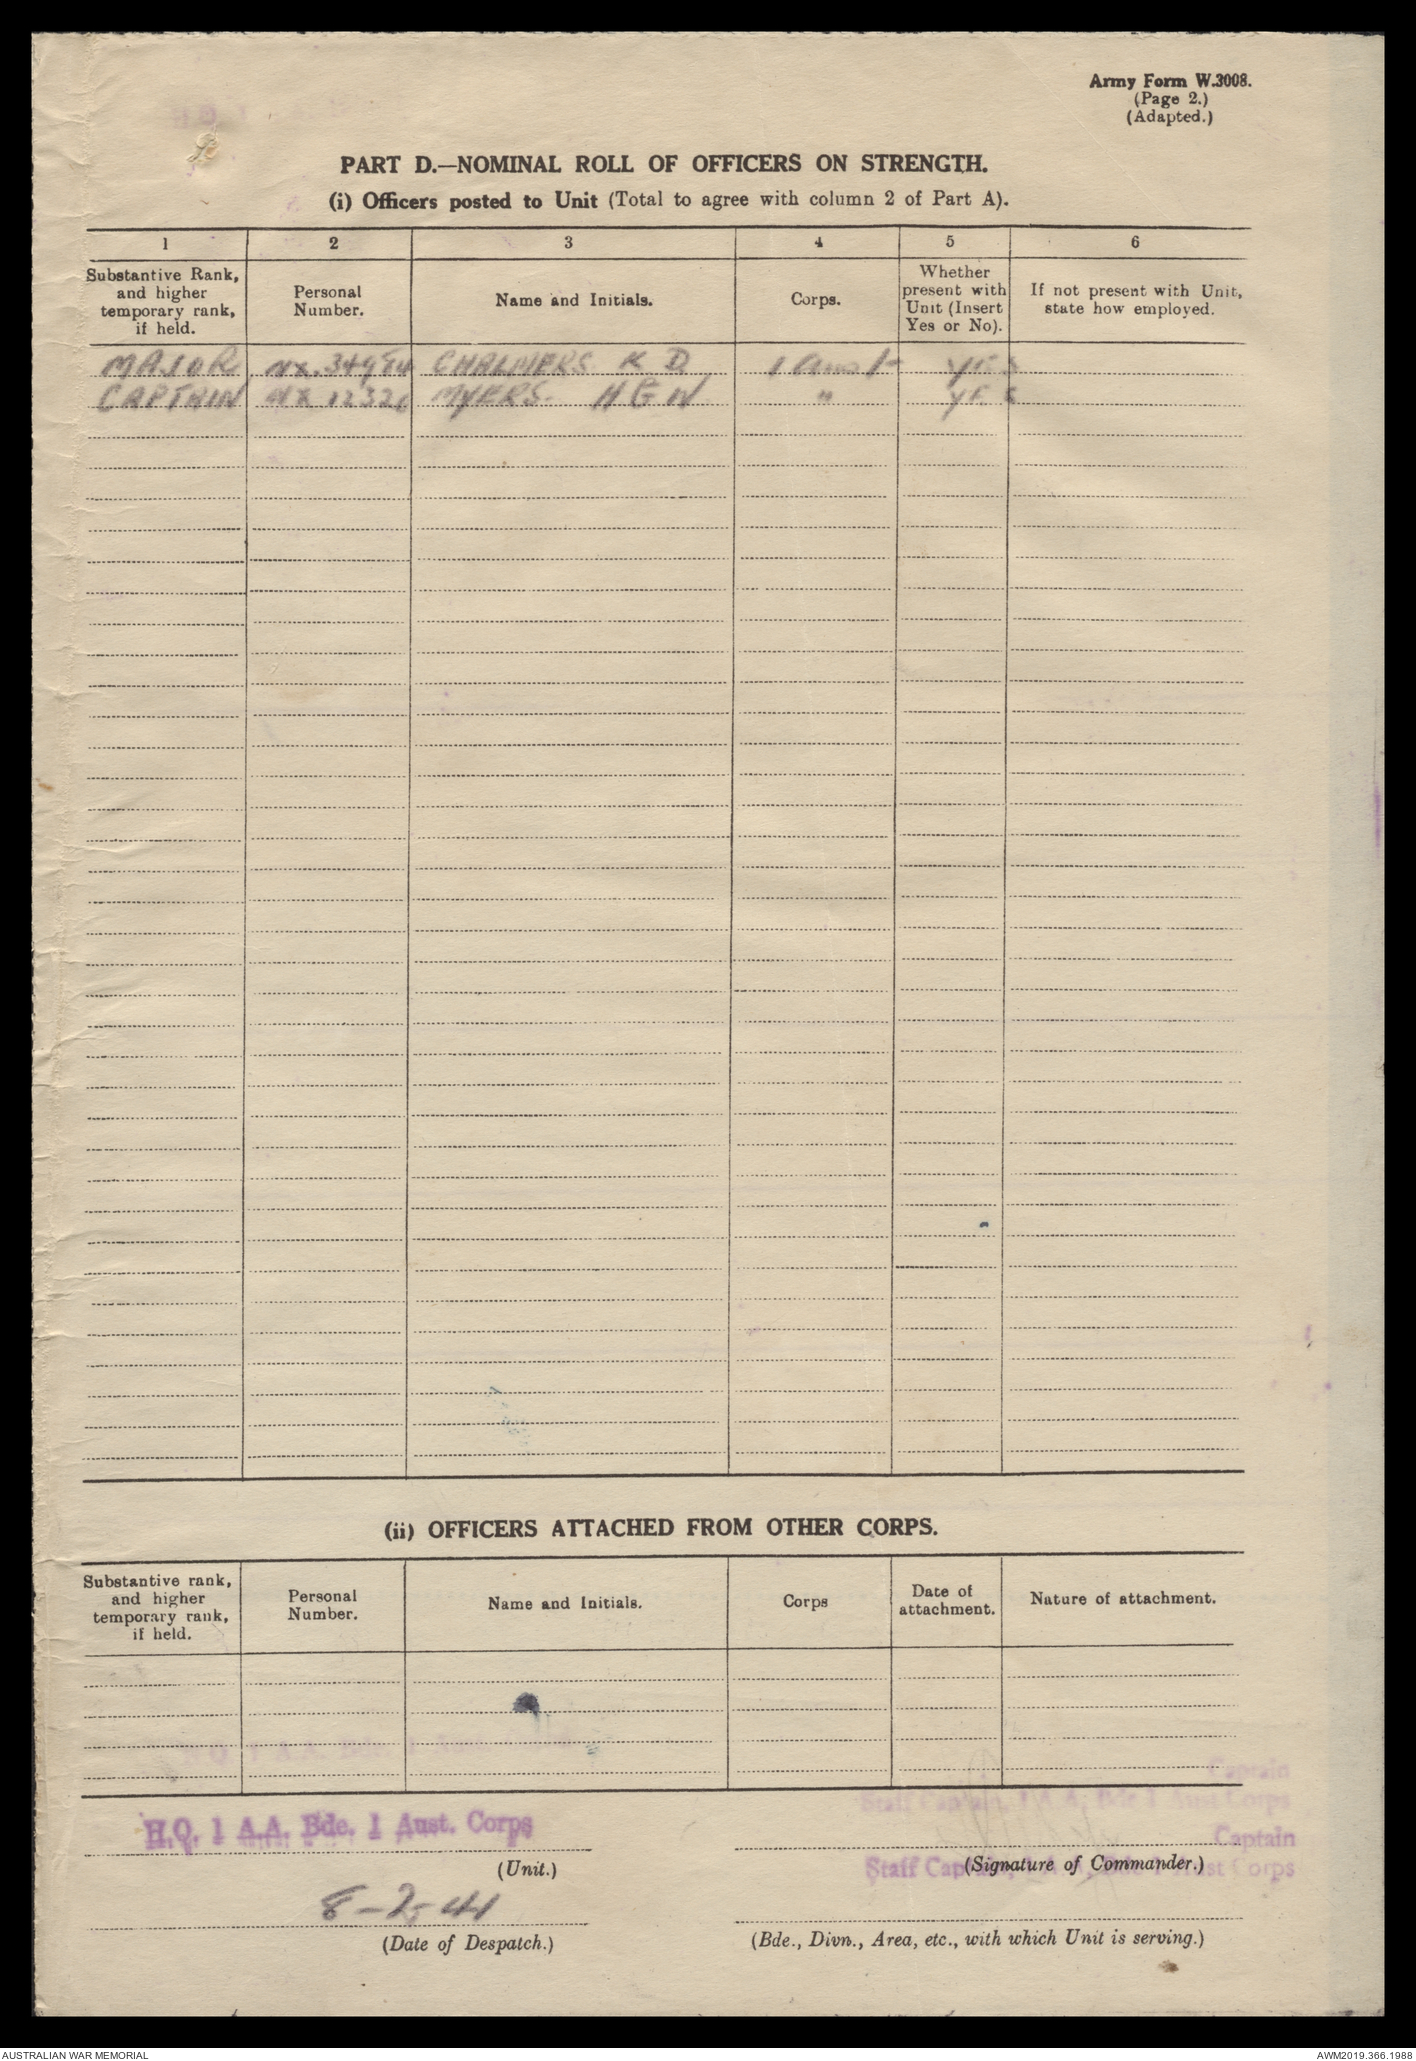 Army Form W.3008.
(Page 2.)
(Adapted.)
PART D.—NOMINAL ROLL OF OFFICERS ON STRENGTH.
(i) Officers posted to Unit (Total to agree with column 2 of Part A).
1 2 3 4 5 6
Substantive Rank,
and higher
temporary rank,
if held.
Personal
Number.
Name and Initials.
Corps.
Whether
present with
Unit (Insert
Yes or No).
If not present with Unit,
state how employed.
MAJOR CHALMERS K D 1 YES
CAPTAIN MYERS. H G W " YES
(ii) OFFICERS ATTACHED FROM OTHER CORPS.
Substantive rank,
and higher
temporary rank,
if held.
Personal
Number.
Name and Initials.
Corps
Date of
attachment.
Nature of attachment.
H.Q. 1 A.A. Bde. 1 Aust. Corps
Captain
Staff Captain, 1 A.A. Bde 1 Aust Corps
H.Q. 1 A.A. Bde. 1 Aust. Corps
Captain
(Unit.)
Staff Captain, 1 A.A. Bde 1 Aust Corps
(Signature of Commander.)
8-2-41
(Date of Despatch.)
(Bde., Divn., Area, etc., with which Unit is serving.)
AUSTRALIAN WAR MEMORIAL
AWM2019.366.1988